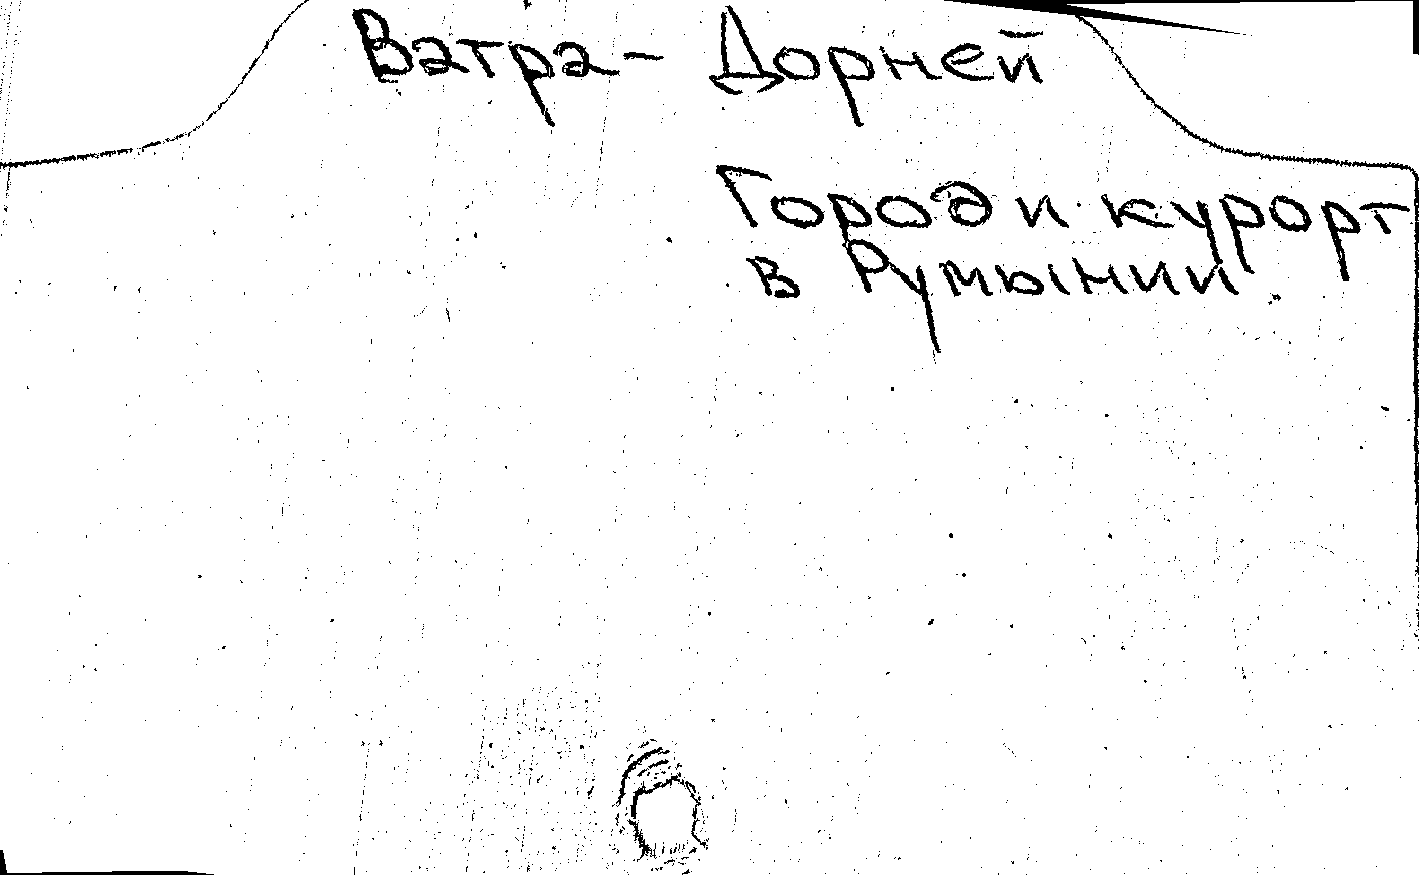 Ватра - Дорней
Город и курорт
в Румынии.